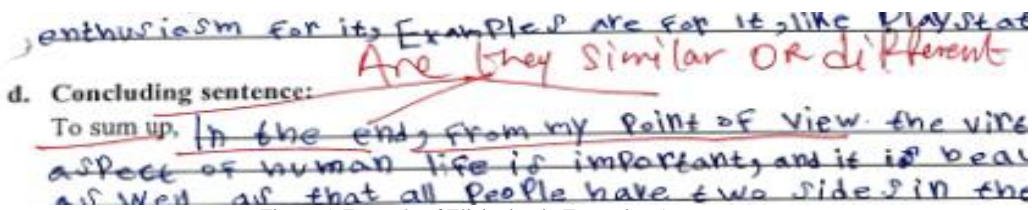 enthusiasm for it, Examples are for it, like Playstat
Are they Similar OR different
d. Concluding sentence:
To sum up, In the end, from my Point of view. the virt
aspect of human life is important, and it is beau
as well as that all People have two sides in the